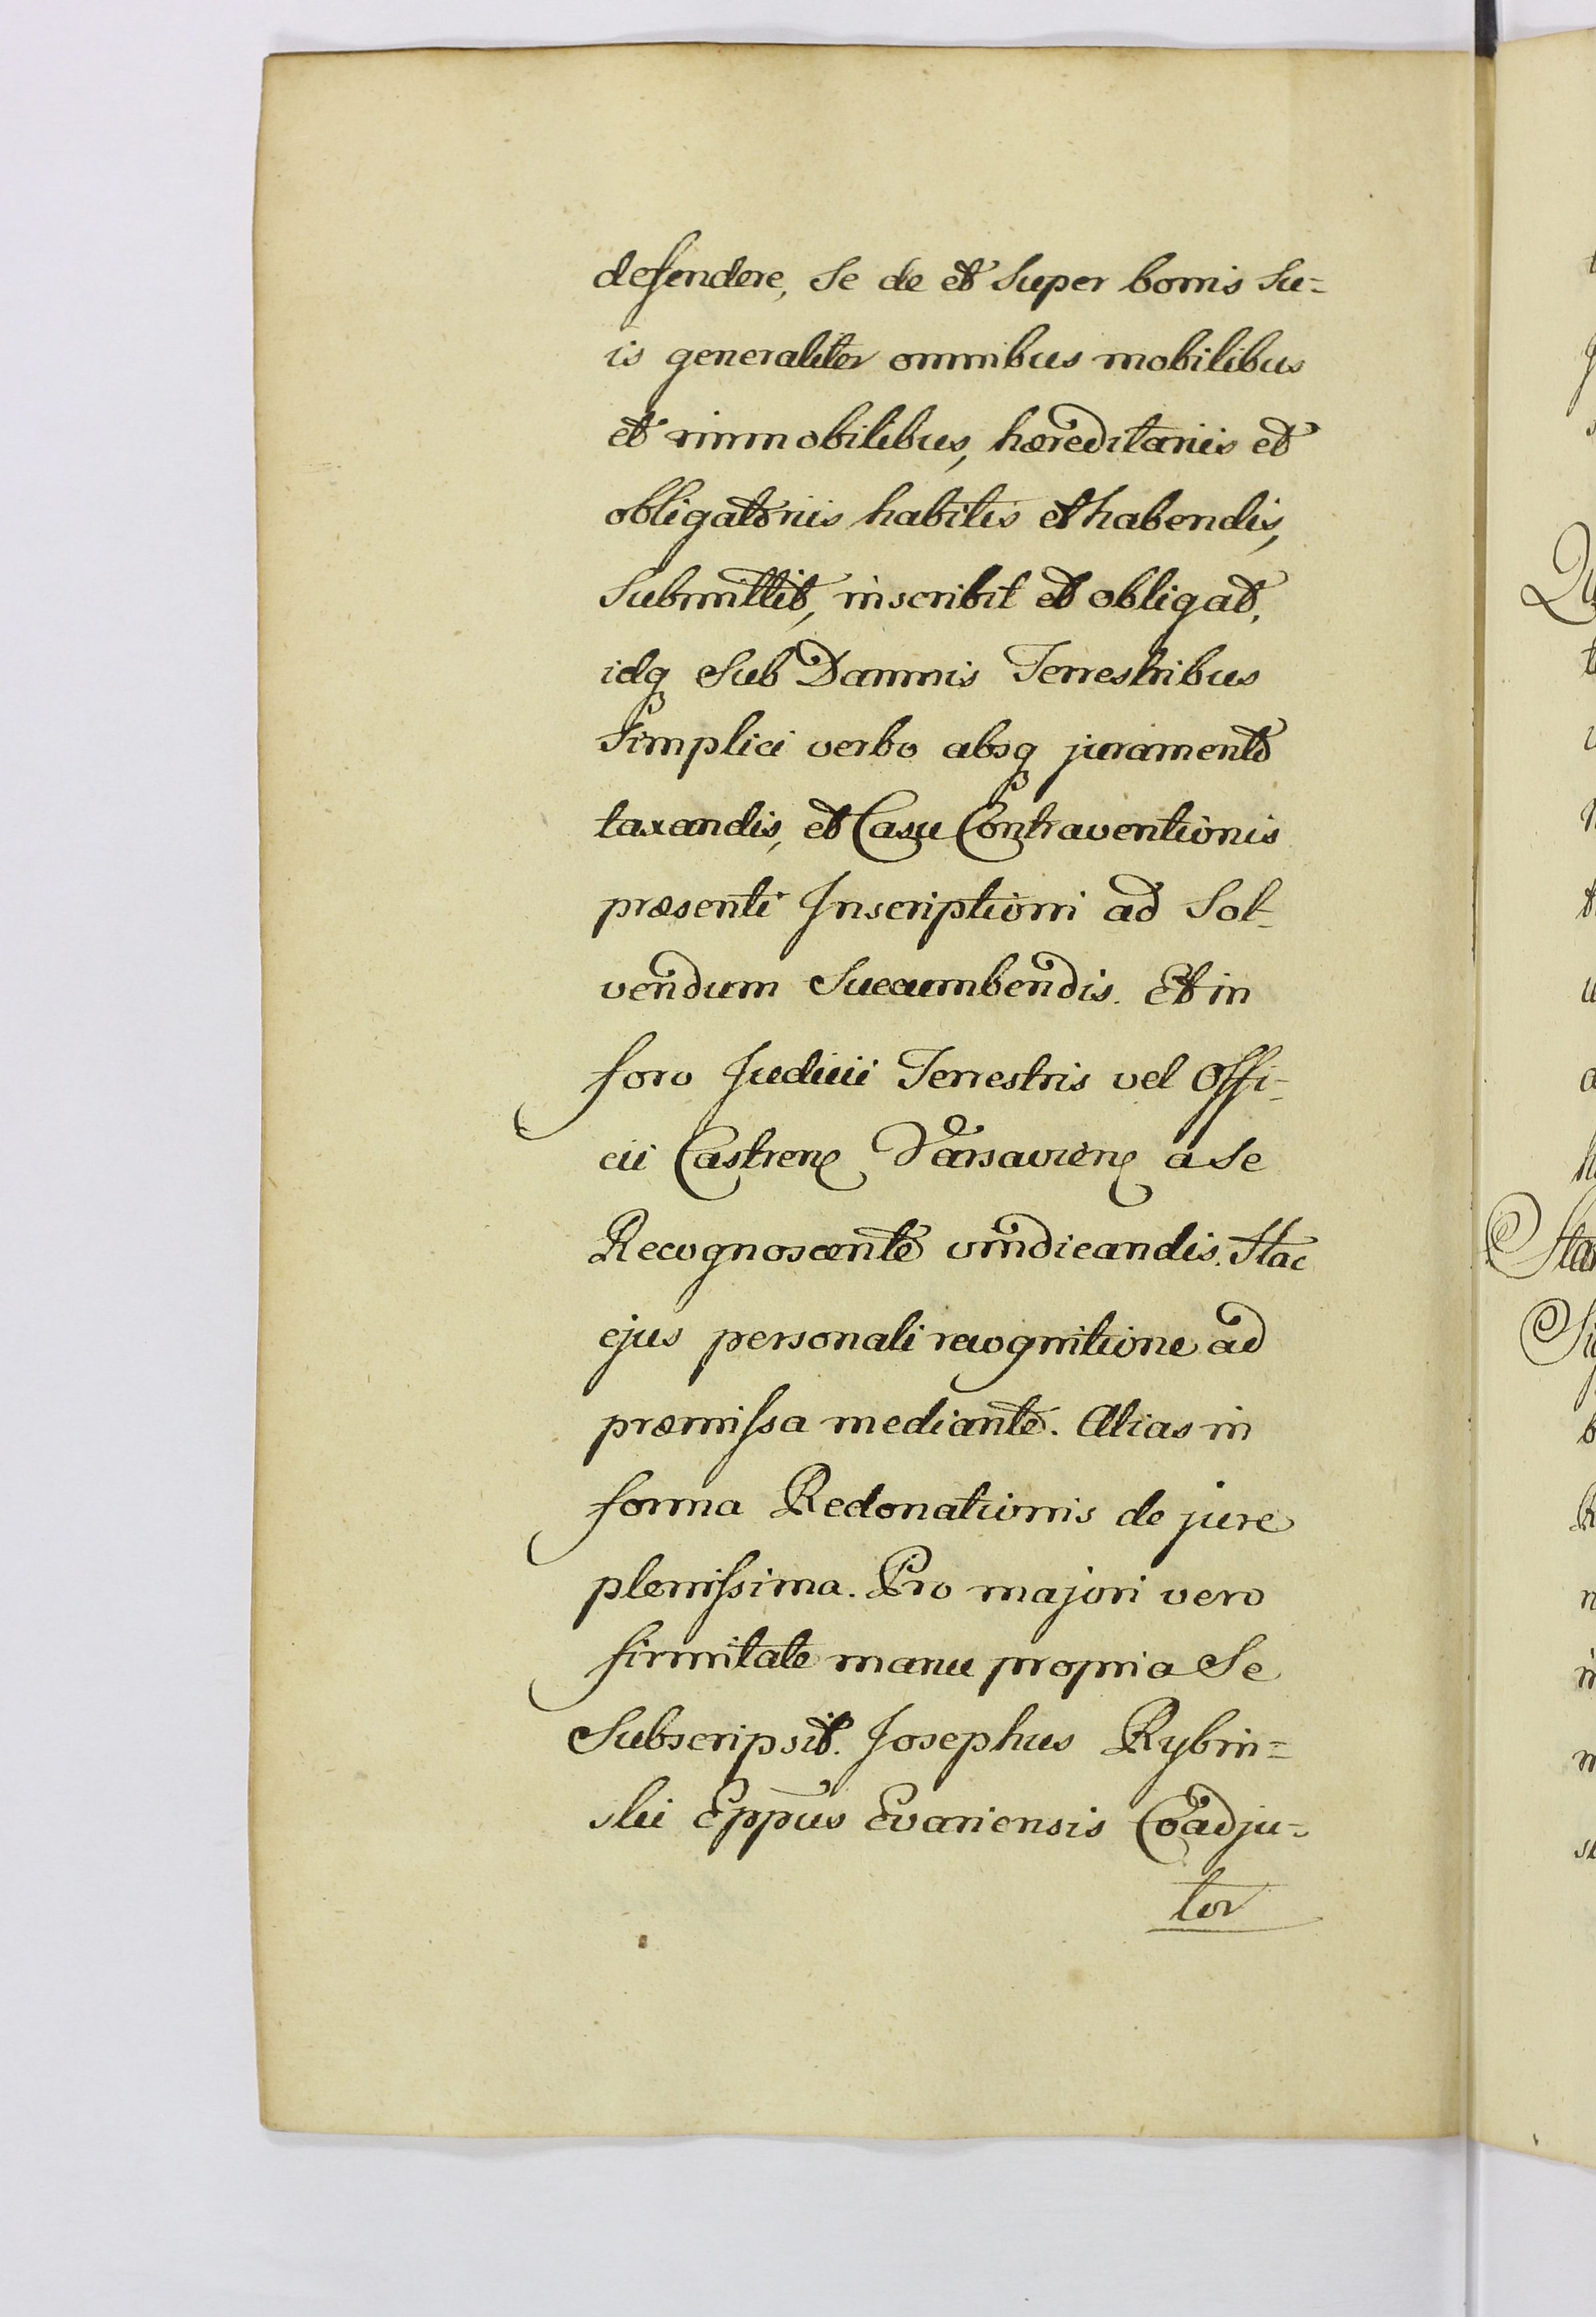 defendere, Se de et Super bonis Su=
is generaliter omnibus mobilibus
et immobilibus, hæreditariis et
obligatoriis habitis et habendis,
Submittit, inscribit et obligat,
idq Sub Damnis Terrestribus
Simplici verbo absq juramento
taxandis, et Casu Contraventionis
præsenti Inscriptioni ad Sol-
vendum Succumbendis. Et in
foro Judicii Terrestris vel Offi-
cii Castren Varsavien a Se
Recognoscente vindicandis. Hac
ejus personali recognitione ad
præmissa mediante. Alias in
forma Redonationis de jure
plenissima. Pro majori vero
firmitate manu propria Se
Subscripsit. Josephus Rybin=
ski Eppus Evariensis Coadju=
tor